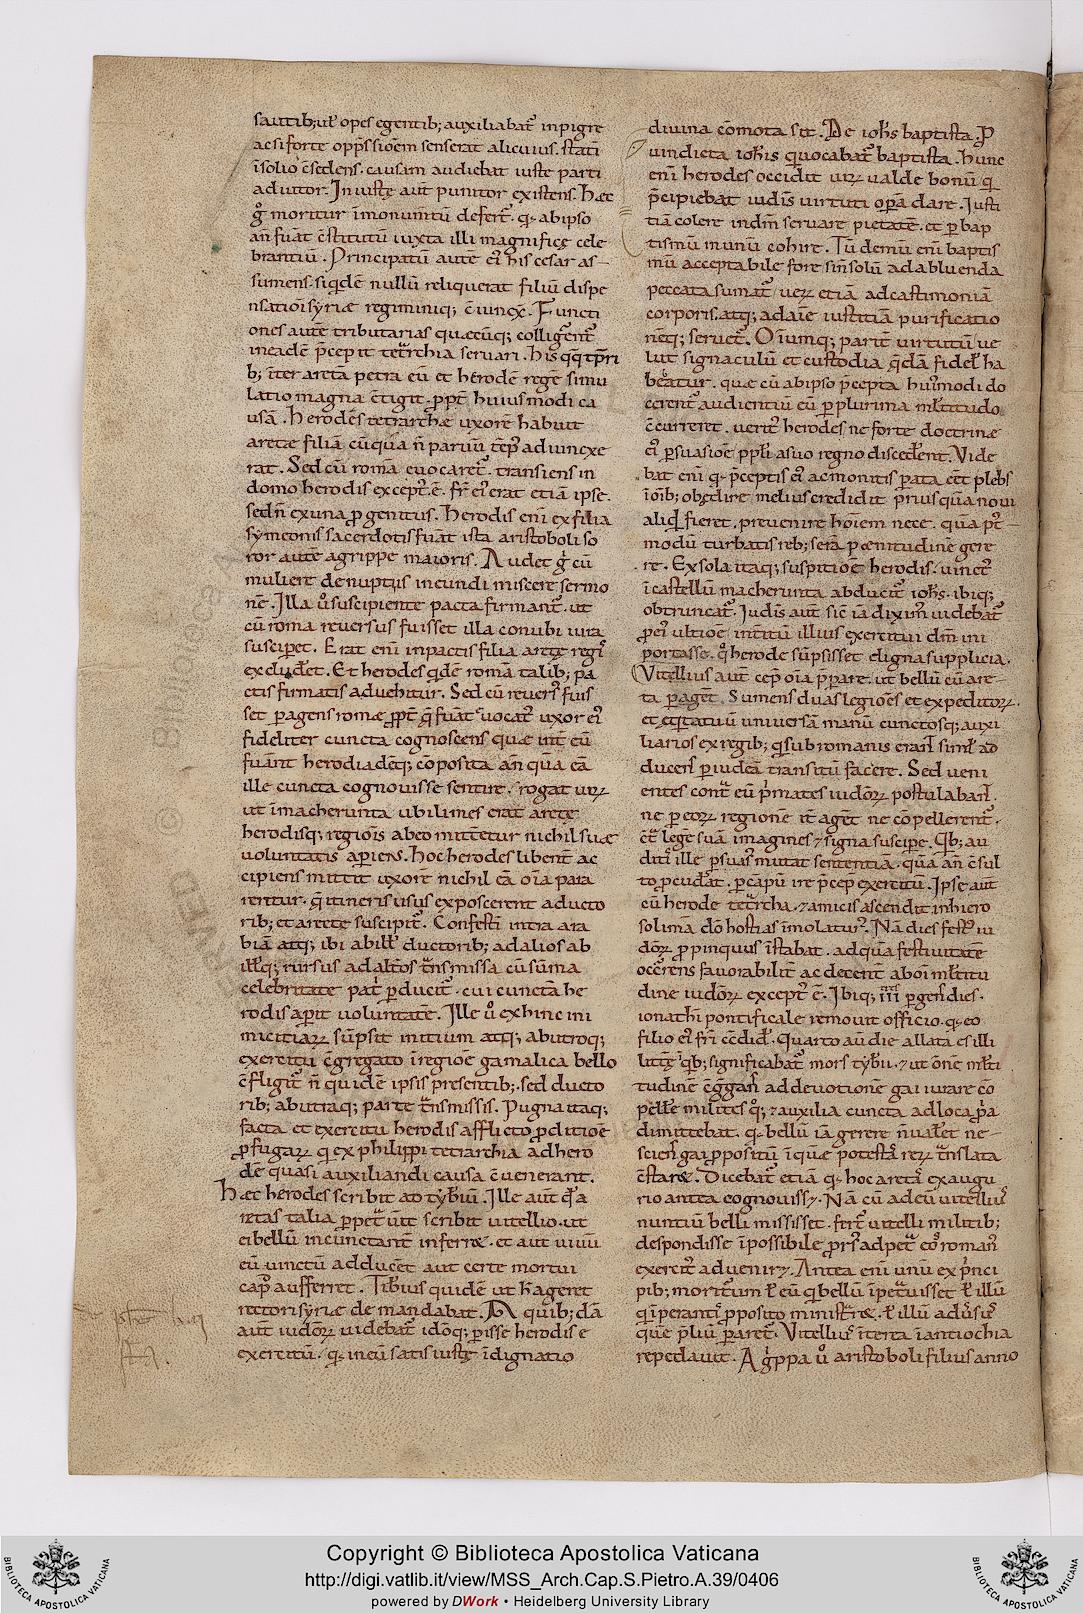 sautib; ut opes egentib; auxiliabat inpigre
ac si forte opp̄ssiōem senserat alicuius. stati
ī solio c̄sedens. causam audiebat iuste parti
adiutor. Iniustę aut punitor existens. Hæc
g̊ moritur ī monumt̄ū defert̄. q; ab ipso
an̄ fuāt c̄stitutū iuxta illi magnificę cele
brantiū. Principatū aute eī his cesar as-
sumens. siq̇dē nullū reliquerat filiū dispe
nsationi syriæ regiminiq; c̄iunx̄. Functi
ones autē tributarias quæcūq; colligūt̄
in eadē p̄cepit tetrarchia seruari. his
b; īter aretā petra eū et herodē regē simu
latio magna c̄tigit. ppt̄ huiusmodi ca
usā. Herodes tetrarchæ uxorē habuit
aretæ filiā cūqua n̄ paruū tēp̄ adiunxe
rat. Sed cū romā euocaret̄. transiens in
domo herodis except̄. ē. fr̄ eī erat etiā ipse.
sed n̄ ex una pgenitus. Herodis enī ex filia
symeonis sacerdotis fuāt ista aristoboli so
ror autē agrippe maioris. Audet g̊ cū
muliere de nuptiis incundi miscere sermo
nē. Illa ů suscipiente pacta firmant̄. ut
cū roma reuersus fuisset illa conubi iura
suscipet. Erat enī in pactis filia arete regī
excludet. Et herodes qdē romā talib; pa
ctis firmatis aduehitur. Sed cū reuerī fuis
set pagens romæ ppt̄ q̄ fuāt uocat̄ uxor eī
fideliter cuncta cognoscens quæ int̄ eū
fuānt herodiadēq; cōposita an̄ quā eā
ille cuncta cognouisse sentire. rogat uirꝝ
ut ī macherunta ubi limes erat arete
herodisq; regiōis ab eo mitt̄etur nichil suæ
uoluntatis apiens. Hoc herodes libent̄ ac
cipiens mittit uxorē nichil eā oīa para
rentur. q̄ itineris usus exposcerent a ducto
rib; et arete suscipit̄. Confestī intra ara
biā atq; ibi ab illis ductorib; ad alios ab
illisq; rursus ad alt̄os t̄nsmissa cū sūma
celebritate patī pducit̄. cui cuncta he
rodis apit uoluntatē. Ille ů ex hinc ini
micitiarꝝ sūpsit initium atq; ab utroq;
exercitu c̄gregato ī regiōe gamalica bello
c̄fligit̄ n̄ quidē ipsis presentib;. sed ducto
rib; ab utraq; parte t̄nsmissis. Pugna itaq;
facta et exercitu herodis afflicto pditiōe
pfugarꝝ q ex philippi tetrarchia ad hero
dē quasi auxiliandi causa c̄uenerant.
Hæc herodes scribit ad tyb̄iū. Ille aut̄ q̄ a
retas talia ppet̄ūit scribit uitellio. ut
ei bellū incunctant̄ inferret. et aut uiuū
eū uinctū adducet aut certe mortui
capī aufferret. Tiberius quidē ut hǣ ageret
rectori syriæ demandabat. A quib; dā
aut̄ iudeorꝝ uidebat̄ idōq; perisse herodis e
exercitū. q; in eū satis iustę īdignatio
diuina cōmota sit. De ioh̄s baptista. P
uindicta ioh̄is qui uocabat̄ baptista. Hunc
enī herodes occidit uirꝝ ualde bonū q
p̄cipiebat iudeis uirtuti opā dare. Iusti
tiā colere in dm̄ seruare pietatē. et p bap
tismū in unū cohire. Tū demū enī baptis
mū acceptabile fore si n̄ solū ad abluenda
peccata sumat̄ uerꝝ etiā ad castimoniā
corporis. atq; ad aīe iustitiā purificatio
nēq; seruet̄. Oīumq; parit̄ uirtutū ue
lut signaculū et custodia qdā fidelis ha
beatur. quæ cū ab ipso p̄cepta huiusmodi do
cerent̄ audientiū eū p plurima multitudo
c̄curreret. uerit̄ herodes ne forte doctrinæ
eī psuasiōe ppl̄i a suo regno discederent. Uide
bat enī q; p̄ceptis eī ac monitis parata eēt plebs
ī oīb; obędire melius credidit prius quā noui
aliqd fieret. preuenire hoīem nece. quā pt̄-
modū turbatis reb; serā pœnitudinē gere
re. Ex sola itaq; suspitiōe herodis. uinct̄
ī castellū macherunta abducit̄ ioh̄s. ibiq;
obtruncat̄. Iudeis aut̄ sic̄ iā dixim̄ uidebat̄
pter ultiōē int̄itū illius exercitui dm̄ in
portasse. q̊ herode sūpsisset digna supplicia.
Uitellius aut̄ cep̄ oīa p̄parare. ut bellū cū are-
ta pagēt. Sumens duas legiōes et expeditorꝝ.
et equitatuū uniuersā manū cunctosq; auxi
liarios ex regib; q sub romanis erant simul ad
ducens p iudeā transitū facere. Sed ueni
entes cont̄ eū primates iudeorꝝ postulabant.
ne p eorꝝ regionē it̄ agēt ne cōpellerent̄.
c̄t̄ legē suā imagines & signa suscipe. Quib; au
ditis ille psuas̄ mutat sententiā. quā an̄ c̄sul
to puidat. p capū ire p̄cepit exercitū. Ipse aut̄
cū herode tetrarcha. & amicis ascendit in hiero
solimā dō hostias īmolatur̄. Nā dies festus iu
deorꝝ ppinquus īstabat. ad quā festiuitatē
occurrens fauorabilit̄ ac decent̄ ab oī multitu
dine iudeorꝝ except̄ ē. Ibiq; III pagens dies.
ionathī pontificale remouit officio. q; eo
filio eī fr̄i c̄cidit. Quarto aū die allata est illi
litt̄ę q̄b; significabat̄ mors tyb̄ii. & ut ōnē multi
tudinē c̄ggans ad deuotionē gai iurare cō
pellt̄e milites q̄; & auxilia cuncta ad loca pria
dimittebat. q; bellū iā gerere n̄ ualet ne-
sciens gai ppositū ī quę potestas rerꝝ t̄nslata
c̄staret. Dicebat̄ etiā q; hoc aretā ex augu
rio antea cognouisset. Nā cū ad eū uitellius
nuntiū belli misisset. fert̄ uitelli militib;
despondisse īpossibile prsus ad petrā eos romanos
exercit̄ aduenire. Antea enī unū ex p̄nci
pib; moriturū ł eū q bellū īpetrauisset ł illū
q īperantis pposito ministraret. ł illū aduersus
quē p̄liū paret̄. Uitellius īterea ī antiochia
repedauit. Agrippa ů aristoboli filius anno